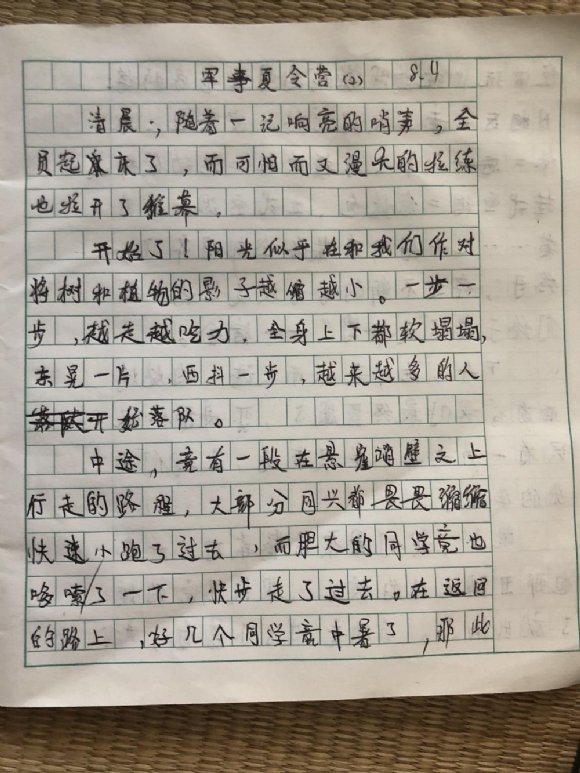 军事夏令营(2) 8.4
清晨,随着一记响亮的哨声,全
员起床了,而可怕而又漫长的拉练
也拉开了帷幕。
开始了!阳光似乎在和我们作对
将树和植物的影子越缩越小。一步一
步,越走越吃力,全身上下都软塌塌,
东晃一片,西抖一步,越来越多的人
开始落队。
中途,竟有一段在悬崖峭壁之上
行走的路程,大部分同兴都畏畏缩缩
快速小跑了过去,而胆大的同学竟也
哆嗦了一下,快步走了过去。在返回
的路上,好几个同学竟中暑了,那些